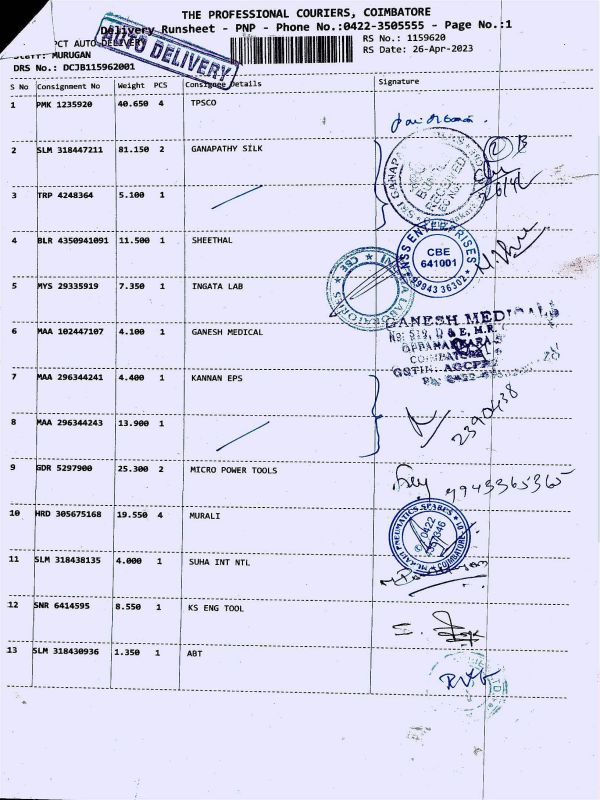 THE PROFESSIONAL COURIERS, COIMBATORE
Delivery Runsheet - PNP - Phone No.:0422-3505555 - Page No.:1
PCT AUTO DELIVERY
AUTO DELIVERY
RS No.: 1159620
Staff: MURUGAN
RS Date: 26-Apr-2023
DRS No.: DCJB115962001
S No Consignment No Weight PCS Consignee Details Signature
1 PMK 1235920 40.650 4 TPSCO
2 SLM 318447211 81.150 2 GANAPATHY SILK
3 TRP 4248364 5.100 1
4 BLR 4350941091 11.500 1 SHEETHAL
NSS ENTERPRISES
CBE
641001
89943 36302
5 MYS 29335919 7.350 1 INGATA LAB
6 MAA 102447107 4.100 1 GANESH MEDICAL
GANESH MEDICALS
7 MAA 296344241 4.400 1 KANNAN EPS
8 MAA 296344243 13.900 1
2390438
9 GDR 5297900 25.300 2 MICRO POWER TOOLS
9943365365
10 HRD 305675168 19.550 4 MURALI
11 SLM 318438135 4.000 1 SUHA INT NTL
12 SNR 6414595 8.550 1 KS ENG TOOL
13 SLM 318430936 1.350 1 ABT